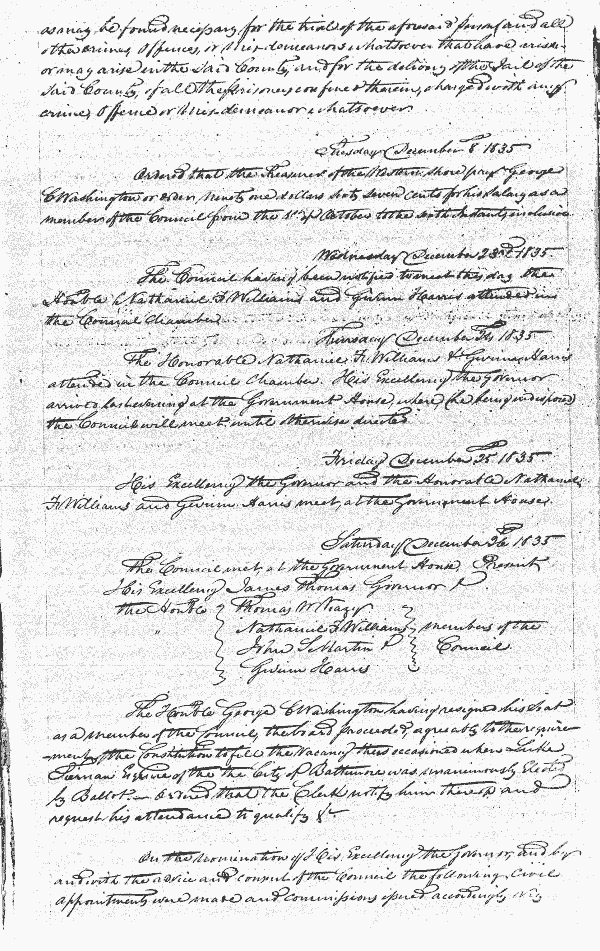 as may be found necessary for the trial of the aforesaid Person and all
other crimes, offences, or Misdemeanors whatsoever that have arisen
or may arise in the said County and for the delivery of the Jail of the
said County, of all the Prisoners confined therein, charged with any
crime, Offence or Misdemeanor whatsoever.
Tuesday December 8 1835
Ordered that the Treasurer of the Western shore pay George
C Washington or order, ninety one dollars sixty seven cents for his salary as a
member of the Council from the 1st of October to the sixth Instant, inclusive
Wednesday December 23rd 1835.
The Council having been notified to meet this day the
Honble Nathaniel F Williams and Gwinn Harris attended in
the Council Chamber.
Thursday December 24 1835
The Honorable Nathaniel F. Williams & Gwinn Harris
attended in the Council Chamber. His Excellency the Governor
arrived last evening at the Government House, where (he being indisposed)
the Council will meet until otherwise directed.
Friday December 25 1835
His Excellency the Governor and the Honorable Nathaniel
F. Williams and Gwinn Harris meet at the Government House.
Saturday December 26 1835
The Council met at the Government House, Present
His Excellency James Thomas Governor
the Honble Thomas W Veazy
" Nathaniel F Williams members of the
John S Martin Council
Gwinn Harris
The Honble George C Washington having resigned his Seat
as a member of the Council, the board proceeded, agreeably to the require-
ments of the Constitution to fill the Vacancy thus occasioned when Luke
Tiernan Esquire of the the City of Baltimore was unanimously Elected
by Ballot. — Ordered that the Clerk notify him thereof and
request his attendance to qualify &c
On the nomination of His Excellency the Governor, and by
and with the advice and consent of the Council the following Civil
Appointments were made and Commissions issued accordingly viz